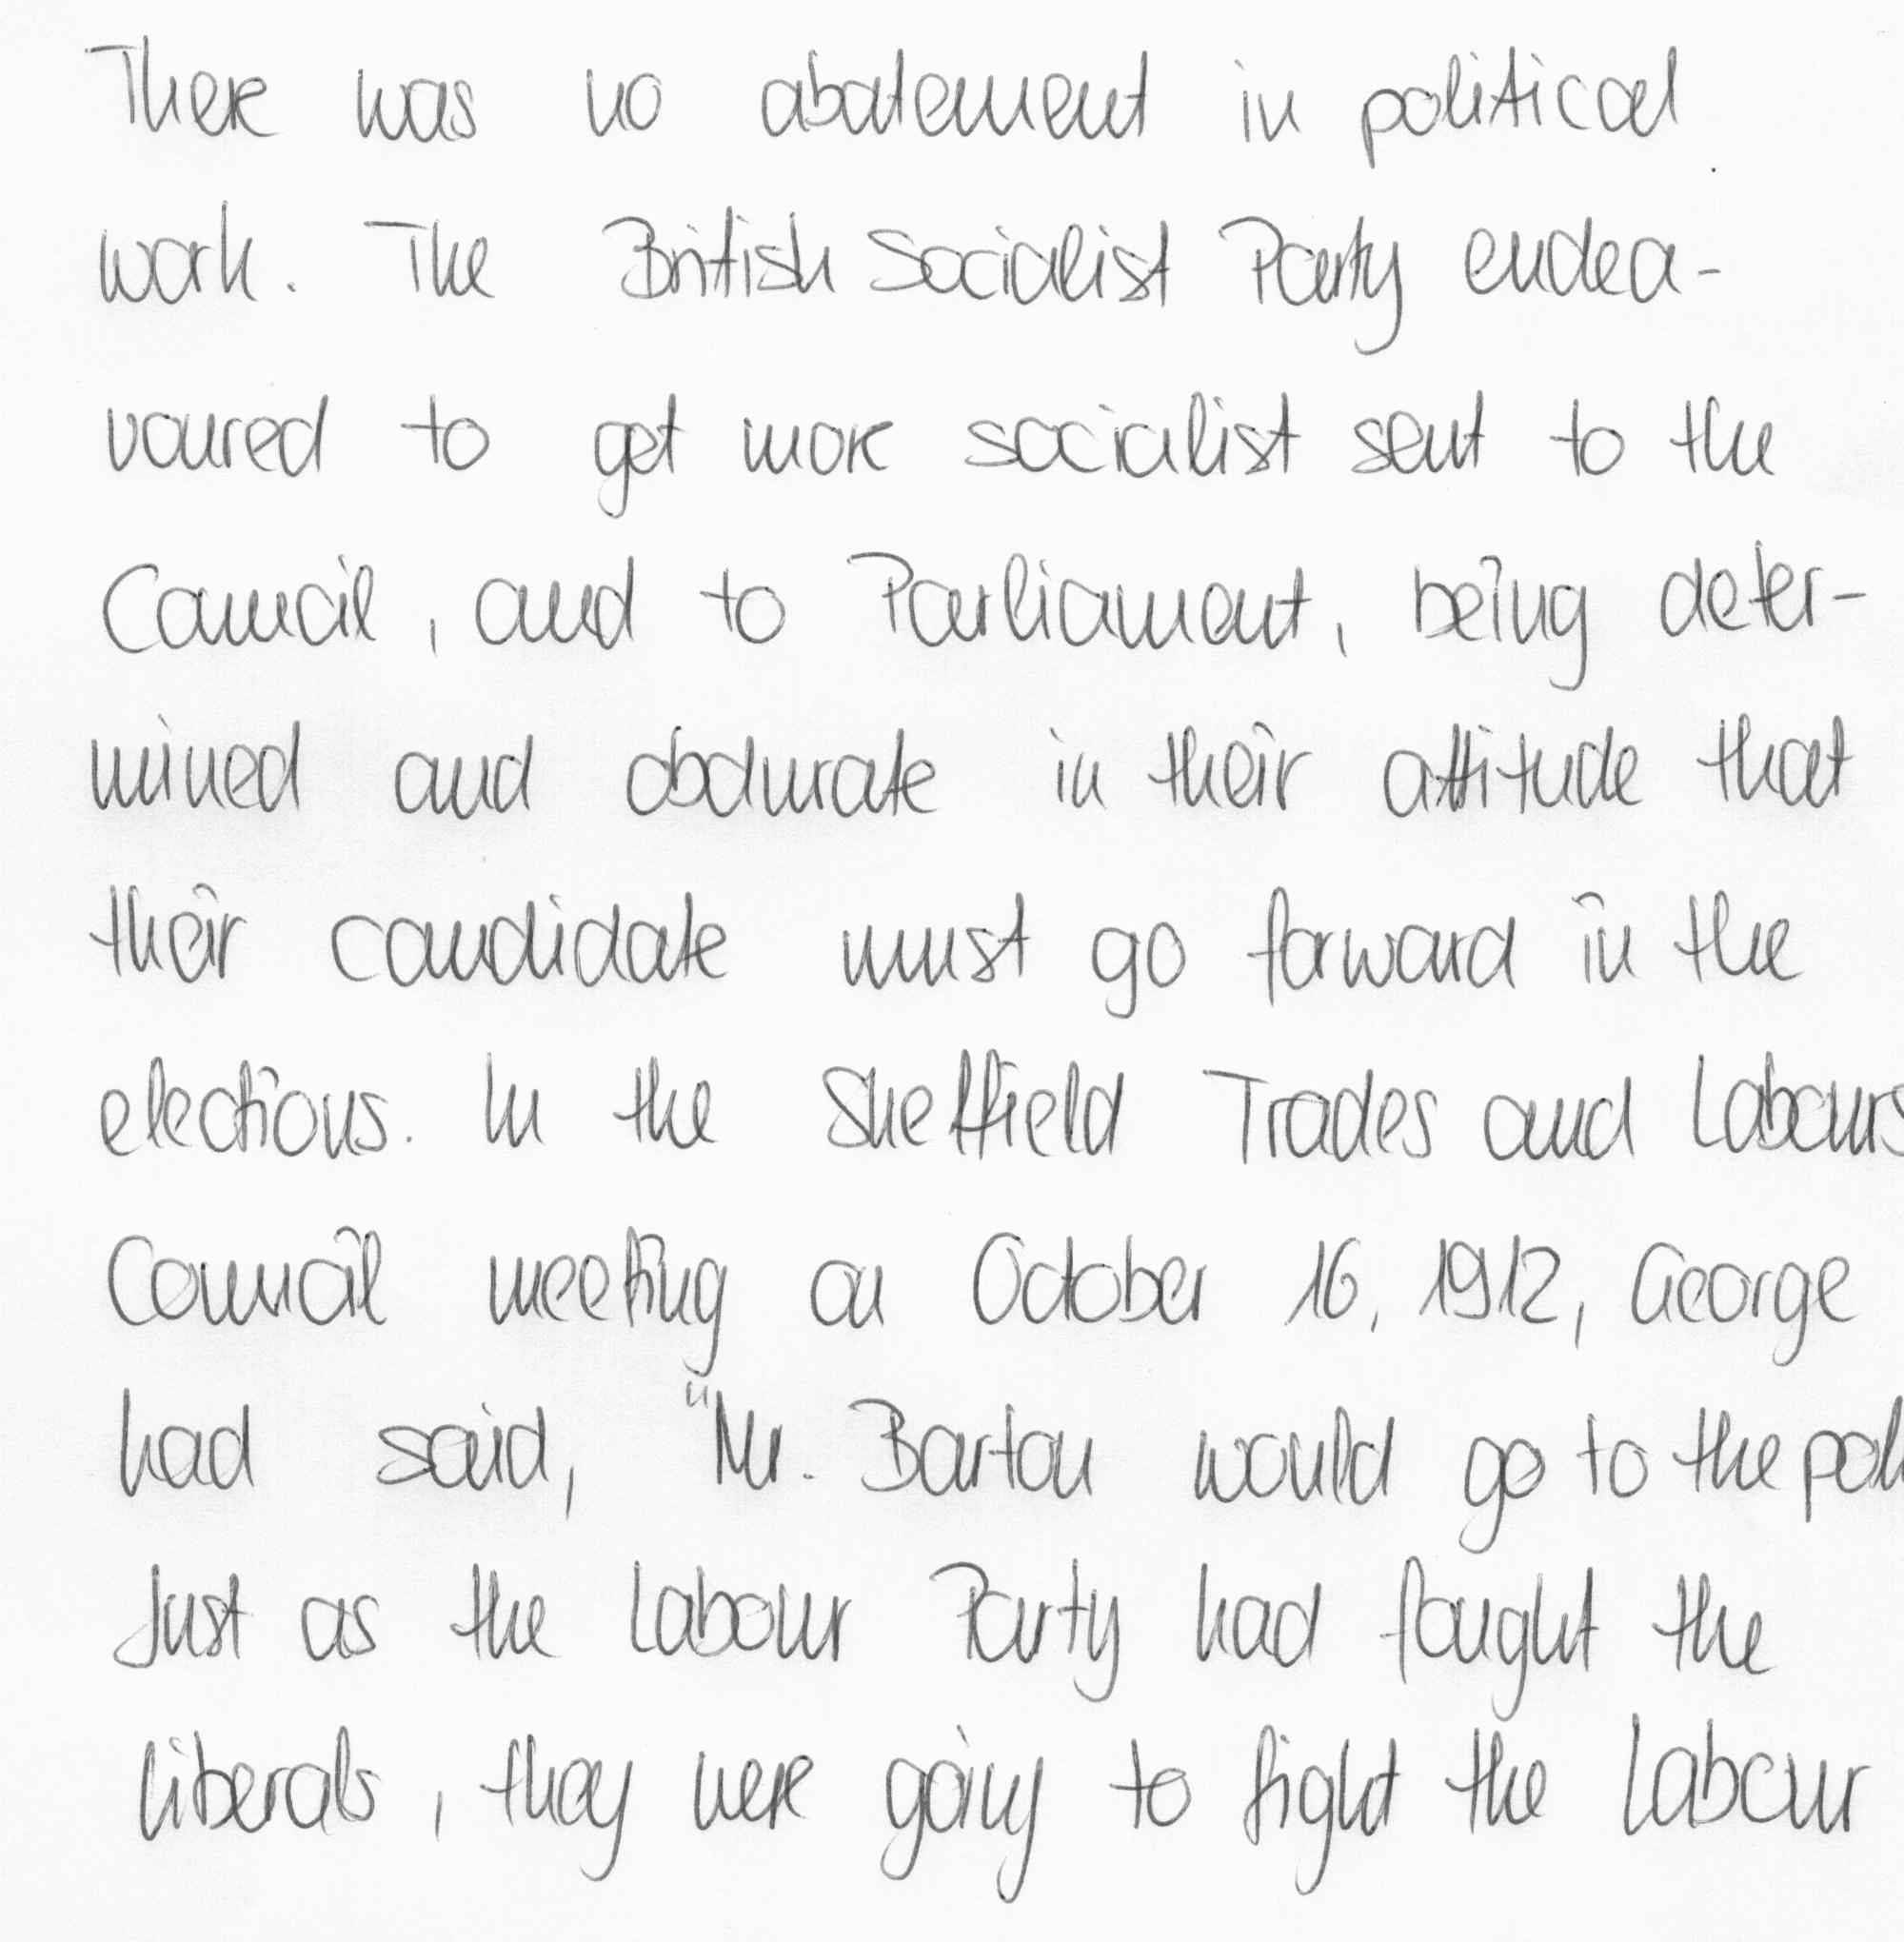 There was no abatement in political
work. The British Socialist Party endea-
voured to get more socialist sent to the
Council, and to Parliament, being deter-
mined and obdurate in their attitude that
their candidate must go forward in the
elections. In the Sheffield Trades and Labours
Council meeting on October 16, 1912, George
had said, "Mr. Barton would go to the
Just as the Labour Party had fought the
liberals, they were going to fight the Labour